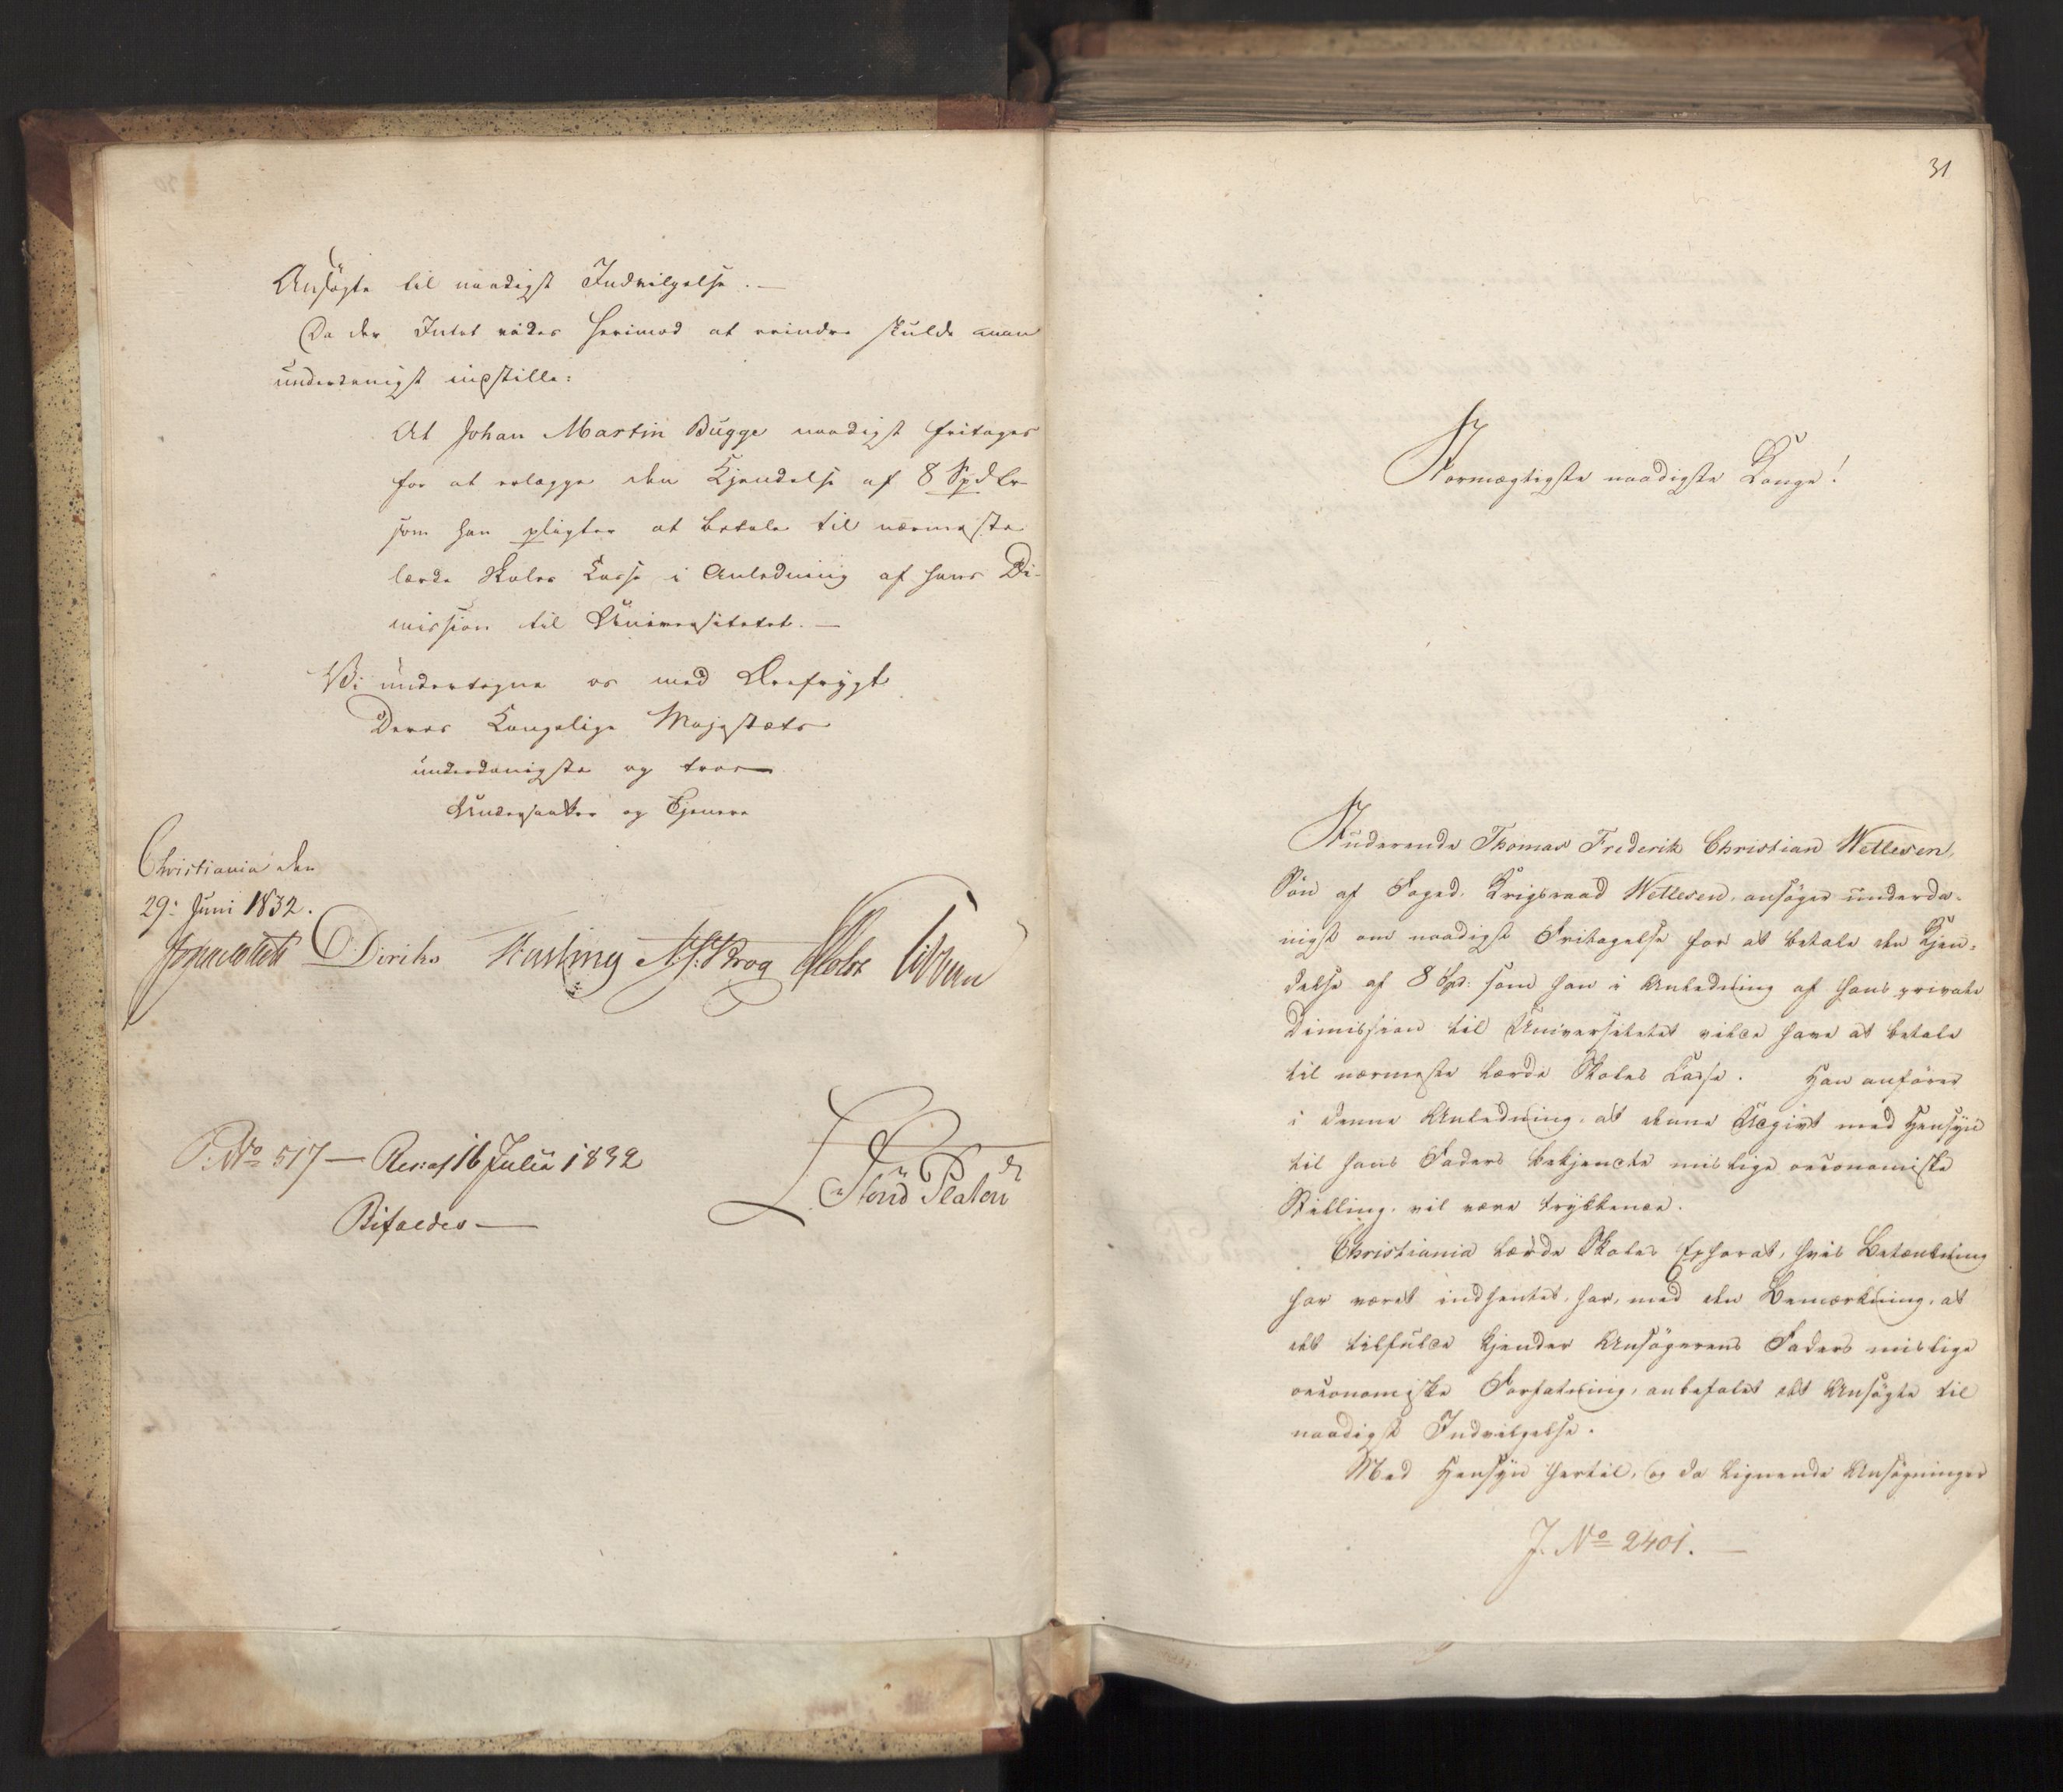 Ansøgte til naadigst Indvilgelse. —
Da der Intet vides herimod at erindre skulde man
underdanigst indstille:
At Johan Martin Bugge naadigst fritages
for at erlægge den Kjendelse af 8 Spdlr
som han pligter at betale til nærmeste
lærde Skoles Casse i Anledning af hans Di-
mission til Universitetet. —
Vi undertegne os med Ærefrygt
Deres Kongelige Majestæts
underdanigste og troe
Undersaatter og Tjenere
Christiania den
29: Juni 1832.
Jonas Collett Diriks Fasting Krog Holst Vibe
P. No 517 — Res: af 16 Julii 1832
Bifaldes —
Platen
31
Stormægtigste naadigste Konge!
Studerende Thomas Frederik Christian Wettesen,
Søn af Foged, Krigsraad Wettesen, ansøger underda-
nigst om naadigst Fritagelse for at betale den Kjen-
delse af 8 Spd: som han i Anledning af hans private
Dimission til Universitetet vilde have at betale
til nærmeste lærde Skoles Casse. Han anfører
i denne Anledning, at denne Udgivt med Hensyn
til hans Faders bekjendte mislige oeconomiske
Stilling, vil være trykkende.
Christiania lærde Skoles Ephorat, hvis Betænkning
har været indhentet, har, med den Bemærkning, at
det tilfulde kjender Ansøgerens Faders mislige
oeconomiske Forfatning, anbefalet det Ansøgte til
naadigst Indvilgelse.
Med Hensyn hertil, og da lignende Ansøgninger
J. No 2401. —